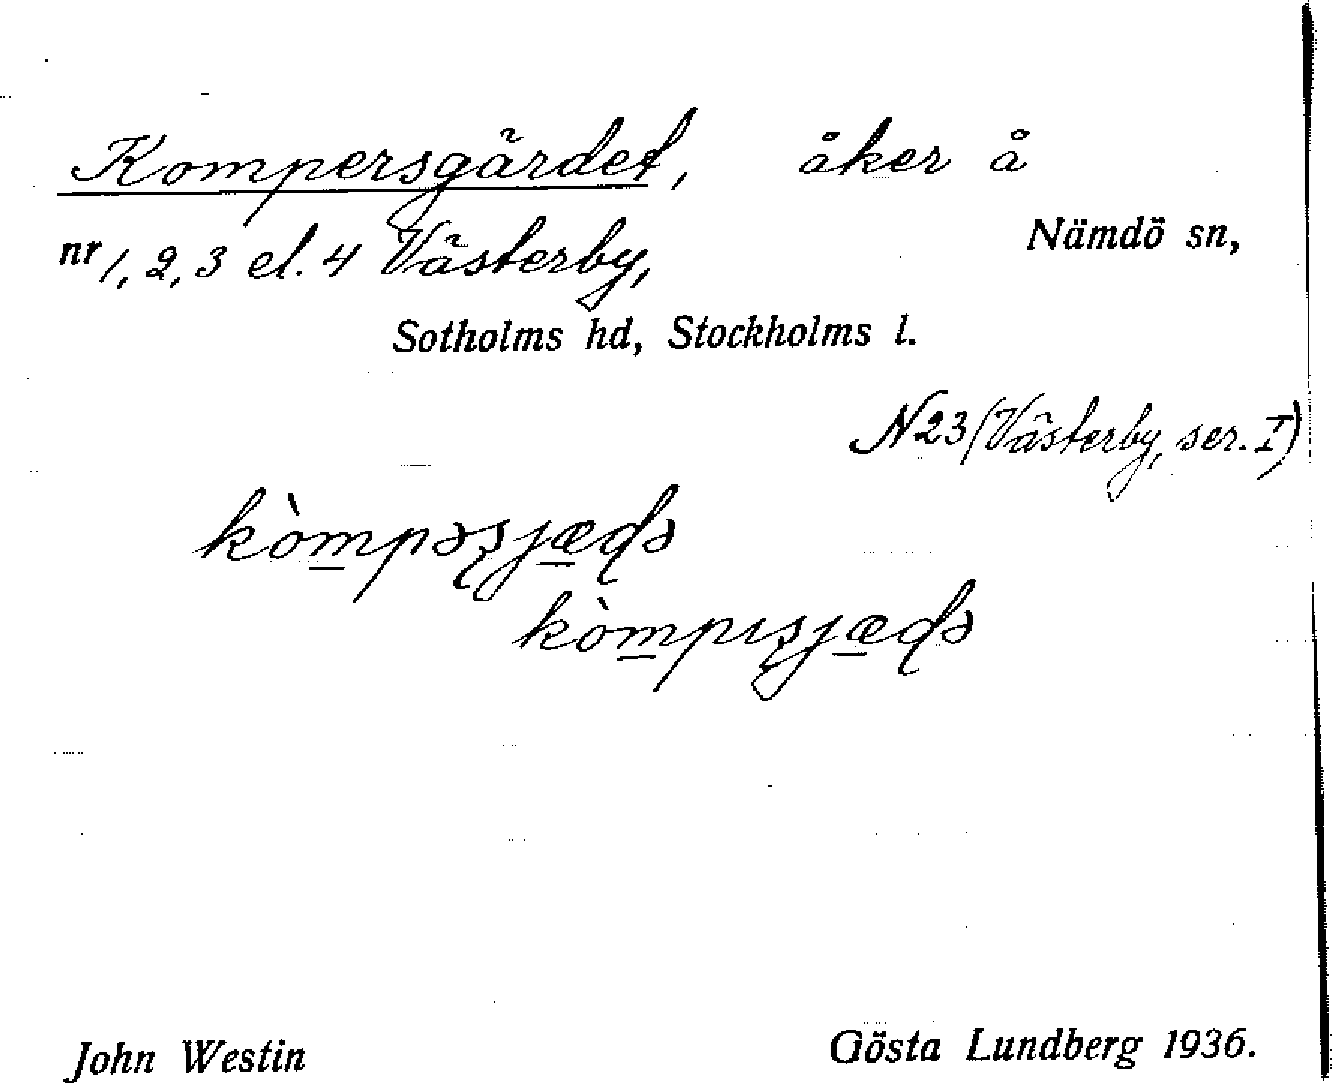 Kompersgärdet, åker å
nr 1, 2, 3 el. 4 Västerby, Nämdö sn,
Sotholms hd, Stockholms l.
N23 (Västerby, ser. I)
kòm̲pəʂjæ̲ɖə
kòm̲pıʂjæ̲ɖə
John Westin Gösta Lundberg 1936.